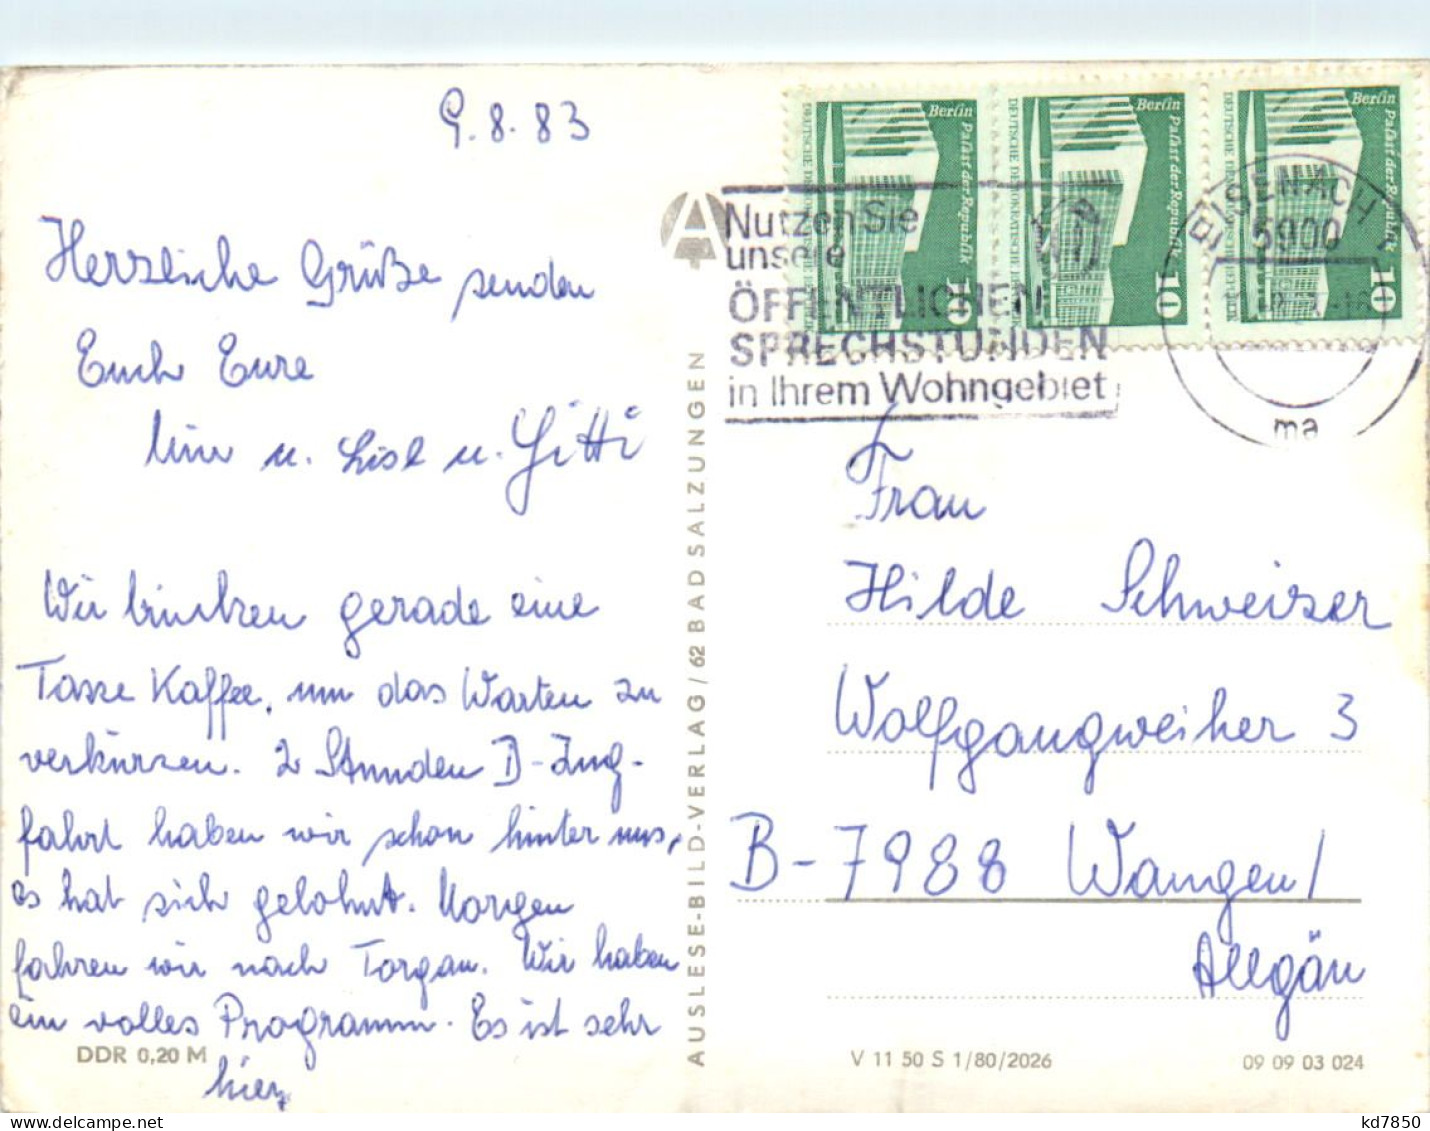 9.8.83
Herzliche Grüße senden
Euch Eure
u. Lisl u. Gitti
Wir trinken gerade eine
Tasse Kaffee, um das Warten zu
verkürzen. 2 Stunden D-Zug-
fahrt haben wir schon hinter uns,
es hat sich gelohnt. Morgen
fahren wir nach Torgau. Wir haben
ein volles Programm. Es ist sehr
DDR 0,20 M
AUSLESE-BILD-VERLAG / 62 BAD SALZUNGEN
Berlin Palast der Republik
10
DEUTSCHE DEMOKRATISCHE
Berlin Palast der Republik
10
Berlin Palast der Republik
10
A
Nutzen Sie
unsere
ÖFFENTLICHEN
SPRECHSTUNDEN
in Ihrem Wohngebiet
EISENACH
5900
ma
Frau
Hilde Schweizer
Wolfgangweiher 3
B-7988 Wangen/
Allgäu
V 11 50 S 1/80/2026
09 09 03 024
kd7850